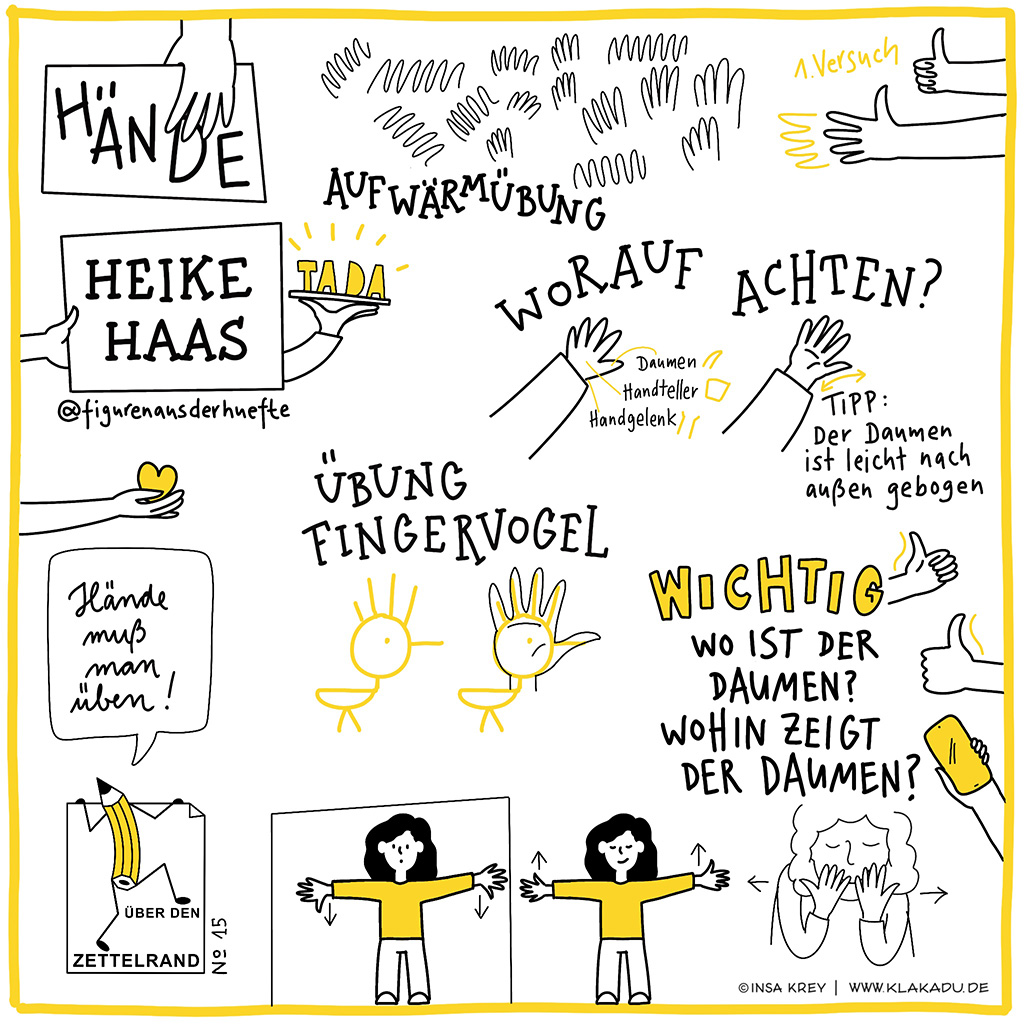 HÄNDE
AUFWÄRMÜBUNG
1. Versuch
HEIKE
HAAS
TADA
@figurenausderhuefte
WORAUF ACHTEN?
Daumen
Handteller
Handgelenk
TIPP:
Der Daumen
ist leicht nach
außen gebogen
ÜBUNG
FINGERVOGEL
Hände
muß
man
üben!
WICHTIG
WO IST DER
DAUMEN?
WOHIN ZEIGT
DER DAUMEN?
ÜBER DEN
ZETTELRAND
Nº 15
©INSA KREY | WWW.KLAKADU.DE